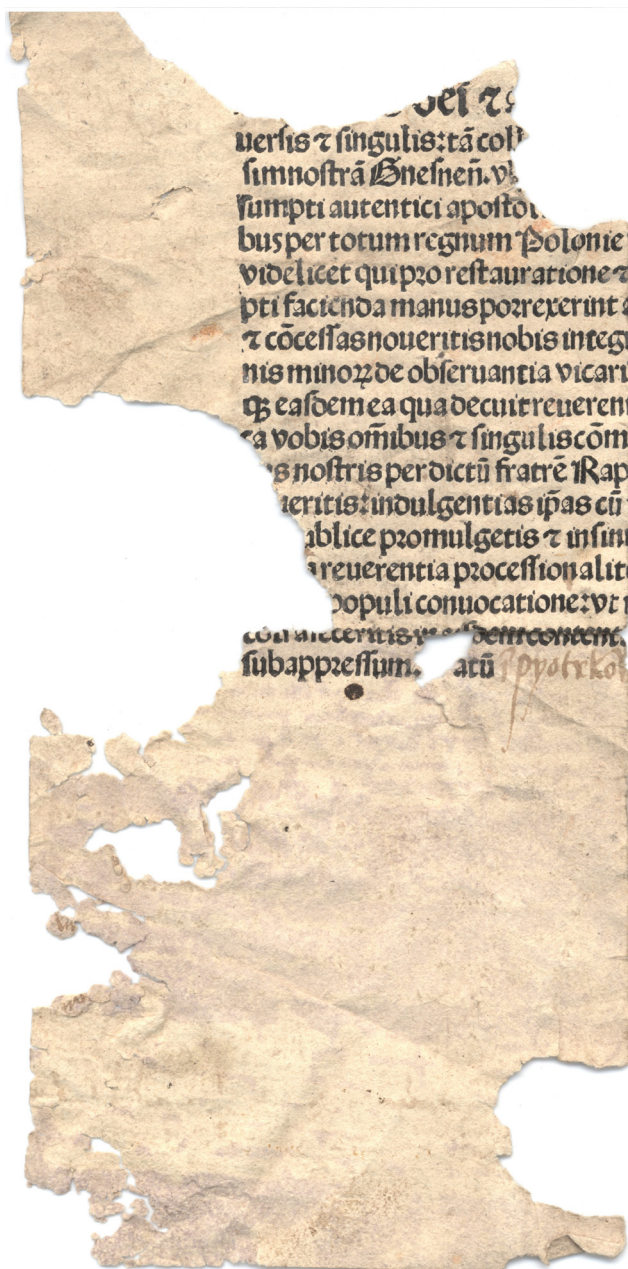 dei ⁊
uersis ⁊ singulis: tā coll
sim nostrā Gnesneñ.
sumpti autentici aposto
bus per totum regnum Polonie
videlicet qui pro restauratione ⁊
pti facienda manus porrexerint
⁊ cōcessas noueritis nobis integ
nis minoꝝ de obseruantia vicari
Qꝫ easdem ea qua decuit reueren
ca vobis om̄ibus ⁊ singulis cōm
s nostris per dictū fratrē Rap
ueritis: indulgentias ip̄as cū
ublice promulgetis ⁊ insin
a reuerentia processionalit
populi conuocatione: vt
subappressum. atū pyotrkow